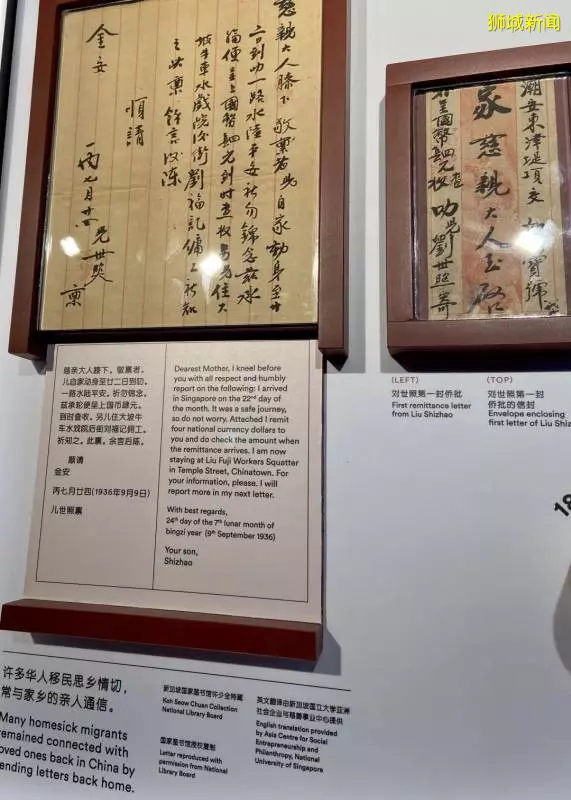 狮城新闻
慈親大人膝下敬稟者兒自家動身至廿
二日到叻一路水陸平安祈勿錦念茲承
輪便呈上國幣四元到时查收另兒住大
坡牛車水戲院後街劉福記傭工祈知
之此稟餘言後陳
順請
金安
丙七月廿四 兒世照 稟
潮安東津堤頂交
家慈親大人玉啟
呈國幣四元查收 叻兒劉世照寄
慈亲大人膝下。敬禀者。
儿自家动身至廿二日到叻。
一路水陆平安。祈勿锦念。
兹承轮便呈上国币肆元。
到时查收。另儿住大坡牛
车水戏院后街刘福记佣工。
祈知之。此禀。余言后陈。
顺请
金安
丙七月廿四(1936年9月9日)
儿世照禀
Dearest Mother, I kneel before
you with all respect and humbly
report on the following: I arrived
in Singapore on the 22nd day of
the month. It was a safe journey,
so do not worry. Attached I remit
four national currency dollars to
you and do check the amount when
the remittance arrives. I am now
staying at Liu Fuji Workers Squatter
in Temple Street, Chinatown. For
your information, please. I will
report more in my next letter.
With best regards,
24th day of the 7th lunar month of
bingzi year (9th September 1936)
Your son,
Shizhao
(LEFT)
刘世照第一封侨批
First remittance letter
from Liu Shizhao
(TOP)
刘世照第一封
侨批的信封
Envelope enclosing
first letter of Liu Shiz
18
许多华人移民思乡情切，
常与家乡的亲人通信。
Many homesick migrants
remained connected with
loved ones back in China by
sending letters back home.
新加坡国家图书馆许少全特藏
Koh Seow Chuan Collection
National Library Board
国家图书馆授权复制
Letter reproduced with
permission from National
Library Board
英文翻译由新加坡国立大学亚洲
社会企业与慈善事业中心提供
English translation provided
by Asia Centre for Social
Entrepreneurship and
Philanthropy, National
University of Singapore